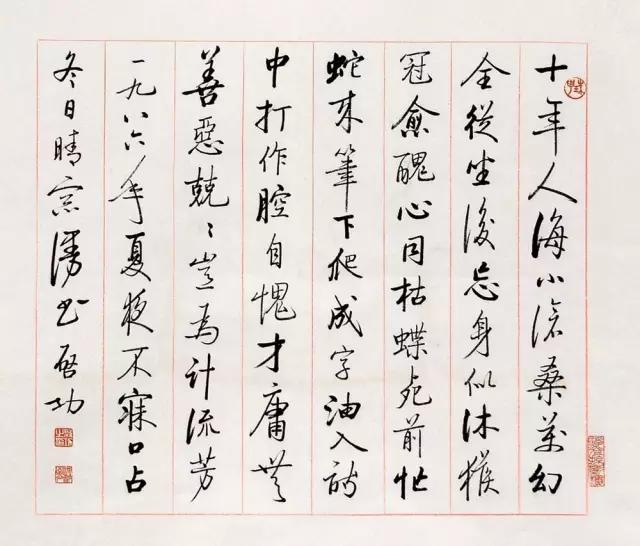 十年人海小滄桑萬幻
全從坐後忘身似沐猴
冠愈醜心同枯蝶死前忙
蛇來筆下爬成字油入詩
中打作腔自愧才庸無
善惡兢〻豈為計流芳
一九八六年夏夜不寐口占
冬日晴窓漫書 啓功